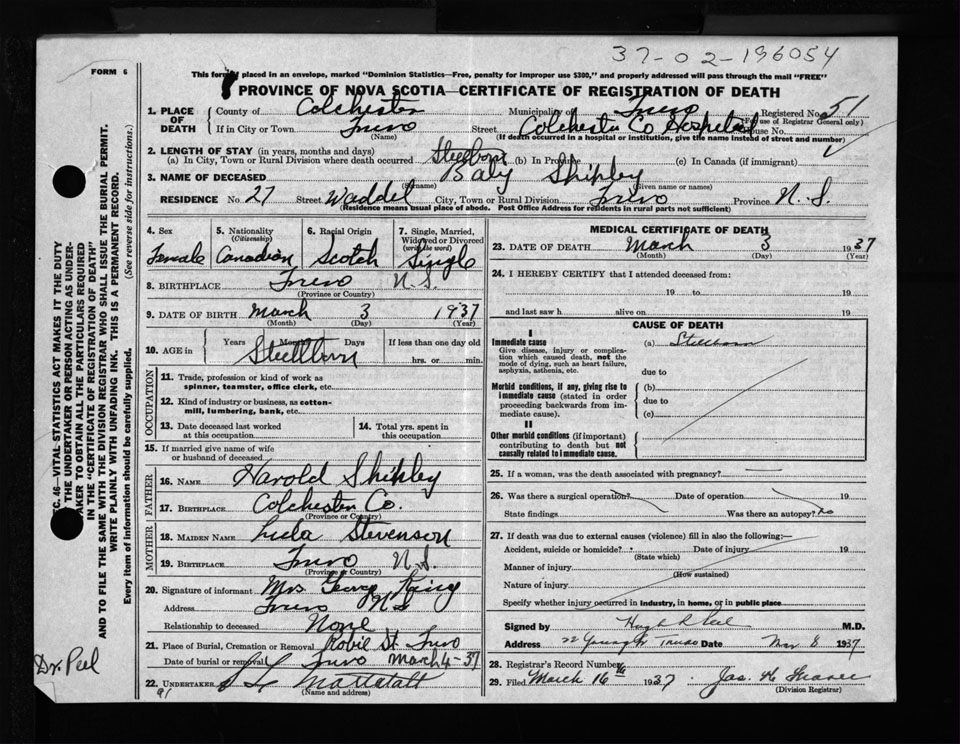 37-02-196054
FORM 6
This form if placed in an envelope, marked "Dominion Statistics—Free, penalty for improper use $300," and properly addressed will pass through the mail "FREE"
PROVINCE OF NOVA SCOTIA—CERTIFICATE OF REGISTRATION OF DEATH
1. PLACE OF DEATH County of Colchester Municipality of Truro Registered No. 51
(For use of Registrar General only)
If in City or Town Truro Street Colchester Co Hospital House No.
(Name) (If death occurred in a hospital or institution, give the name instead of street and number)
2. LENGTH OF STAY (in years, months and days)
(a) In City, Town or Rural Division where death occurred Steelborn (b) In Province (c) In Canada (if immigrant)
3. NAME OF DECEASED Baby Shipley
(Surname) (Given name or names)
RESIDENCE No. 27 Street Waddel City, Town or Rural Division Truro Province N.S.
(Residence means usual place of abode. Post Office Address for residents in rural parts not sufficient)
4. Sex 5. Nationality (Citizenship) 6. Racial Origin 7. Single, Married, Widowed or Divorced (write the word)
Female Canadian Scotch Single
8. BIRTHPLACE Truro N.S.
(Province or Country)
9. DATE OF BIRTH March 3 1937
(Month) (Day) (Year)
10. AGE in Years Months Days If less than one day old
Steellborn hrs. or min.
OCCUPATION
11. Trade, profession or kind of work as spinner, teamster, office clerk, etc.
12. Kind of industry or business, as cotton-mill, lumbering, bank, etc.
13. Date deceased last worked at this occupation 14. Total yrs. spent in this occupation
15. If married give name of wife or husband of deceased
FATHER
16. NAME Harold Shipley
17. BIRTHPLACE Colchester Co.
(Province or Country)
MOTHER
18. MAIDEN NAME Lula Stevenson
19. BIRTHPLACE Truro N.S.
(Province or Country)
20. Signature of informant Mrs George King
Address Truro N.S
Relationship to deceased None
21. Place of Burial, Cremation or Removal Robie St. Truro
Date of burial or removal Truro March 4-37
22. UNDERTAKER Mattatall
(Name and address)
MEDICAL CERTIFICATE OF DEATH
23. DATE OF DEATH March 3 1937
(Month) (Day) (Year)
24. I HEREBY CERTIFY that I attended deceased from:
19 to 19
and last saw h alive on 19
CAUSE OF DEATH
I
Immediate cause (a) Stillborn
Give disease, injury or complication which caused death, not the mode of dying, such as heart failure, asphyxia, asthenia, etc.
due to
Morbid conditions, if any, giving rise to immediate cause (stated in order proceeding backwards from immediate cause).
(b)
due to
(c)
II
Other morbid conditions (if important) contributing to death but not causally related to immediate cause.
25. If a woman, was the death associated with pregnancy?
26. Was there a surgical operation? Date of operation 19
State findings Was there an autopsy? no
27. If death was due to external causes (violence) fill in also the following:—
Accident, suicide or homicide? Date of injury 19
(State which)
Manner of injury
(How sustained)
Nature of injury
Specify whether injury occurred in industry, in home, or in public place
Signed by Hugh R Peel M.D.
Address 22 Young St Truro Date Mar 8 1937
28. Registrar's Record Number
29. Filed March 16th 1937 Jas. K
(Division Registrar)
SEC. 46—VITAL STATISTICS ACT MAKES IT THE DUTY
OF THE UNDERTAKER OR PERSON ACTING AS UNDERTAKER TO OBTAIN ALL THE PARTICULARS REQUIRED
IN THE "CERTIFICATE OF REGISTRATION OF DEATH"
AND TO FILE THE SAME WITH THE DIVISION REGISTRAR WHO SHALL ISSUE THE BURIAL PERMIT.
WRITE PLAINLY WITH UNFADING INK. THIS IS A PERMANENT RECORD.
Every item of information should be carefully supplied. (See reverse side for instructions.)
Dr. Peel
91